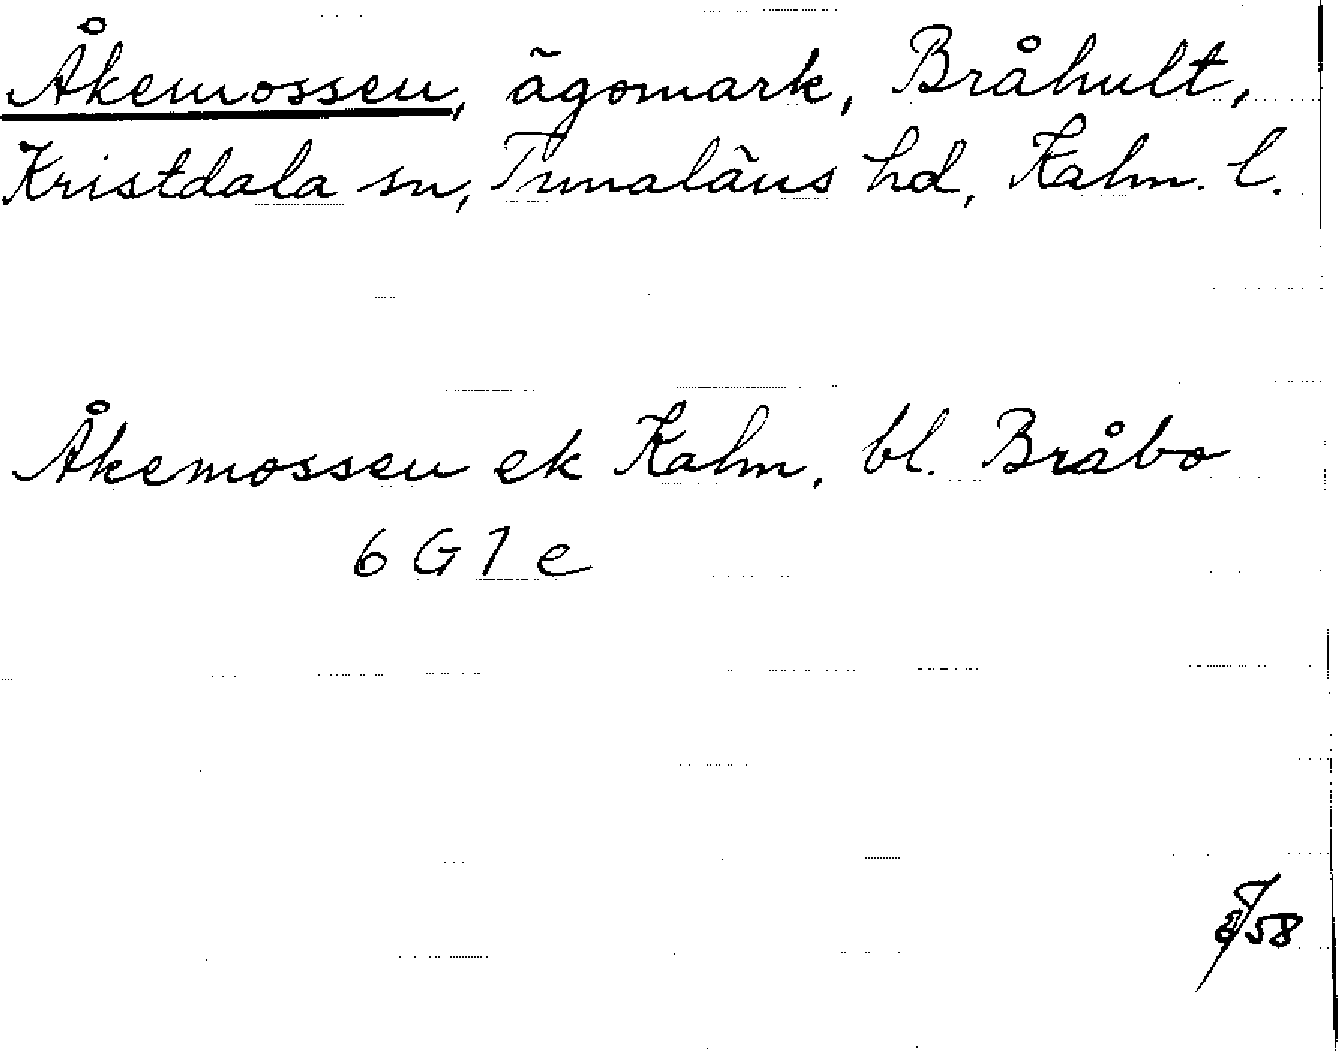 Åkemossen, ägomark, Bråhult,
Kristdala sn, Tunaläns hd, Kalm. l.
Åkemossen ek Kalm. bl. Bråbo
6 G 7 e